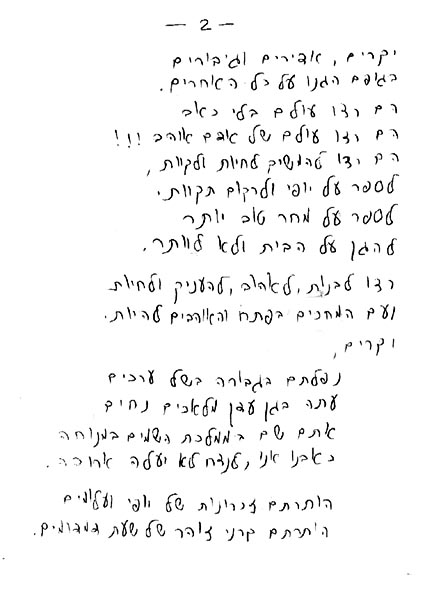 — 2 —
יקרים, אדירים וגיבורים
בגופם הגנו על כל האחרים.
הם רצו עולם בלי כאב
הם רצו עולם של אדם אוהב !!!
הם רצו להמשיך לחיות ולקוות,
לספר על יופי ולרקום תקוות.
לספר על מחר טוב יותר
להגן על הבית ולא לוותר.
רצו לבנות, לאהוב, להעניק ולחיות
ועם המחכים בפתח והאוהבים להיות.
יקרים,
נפלתם בגבורה בשל ערכים
עתה בגן עדן מלאכים נחים
אתם שם בממלכת השמים במנוחה
כאבנו אנו, לנצח לא יעלה ארוכה.
הותרתם זכרונות של יופי ועלומים
הותרתם קרני זוהר של שעת דמדומים.